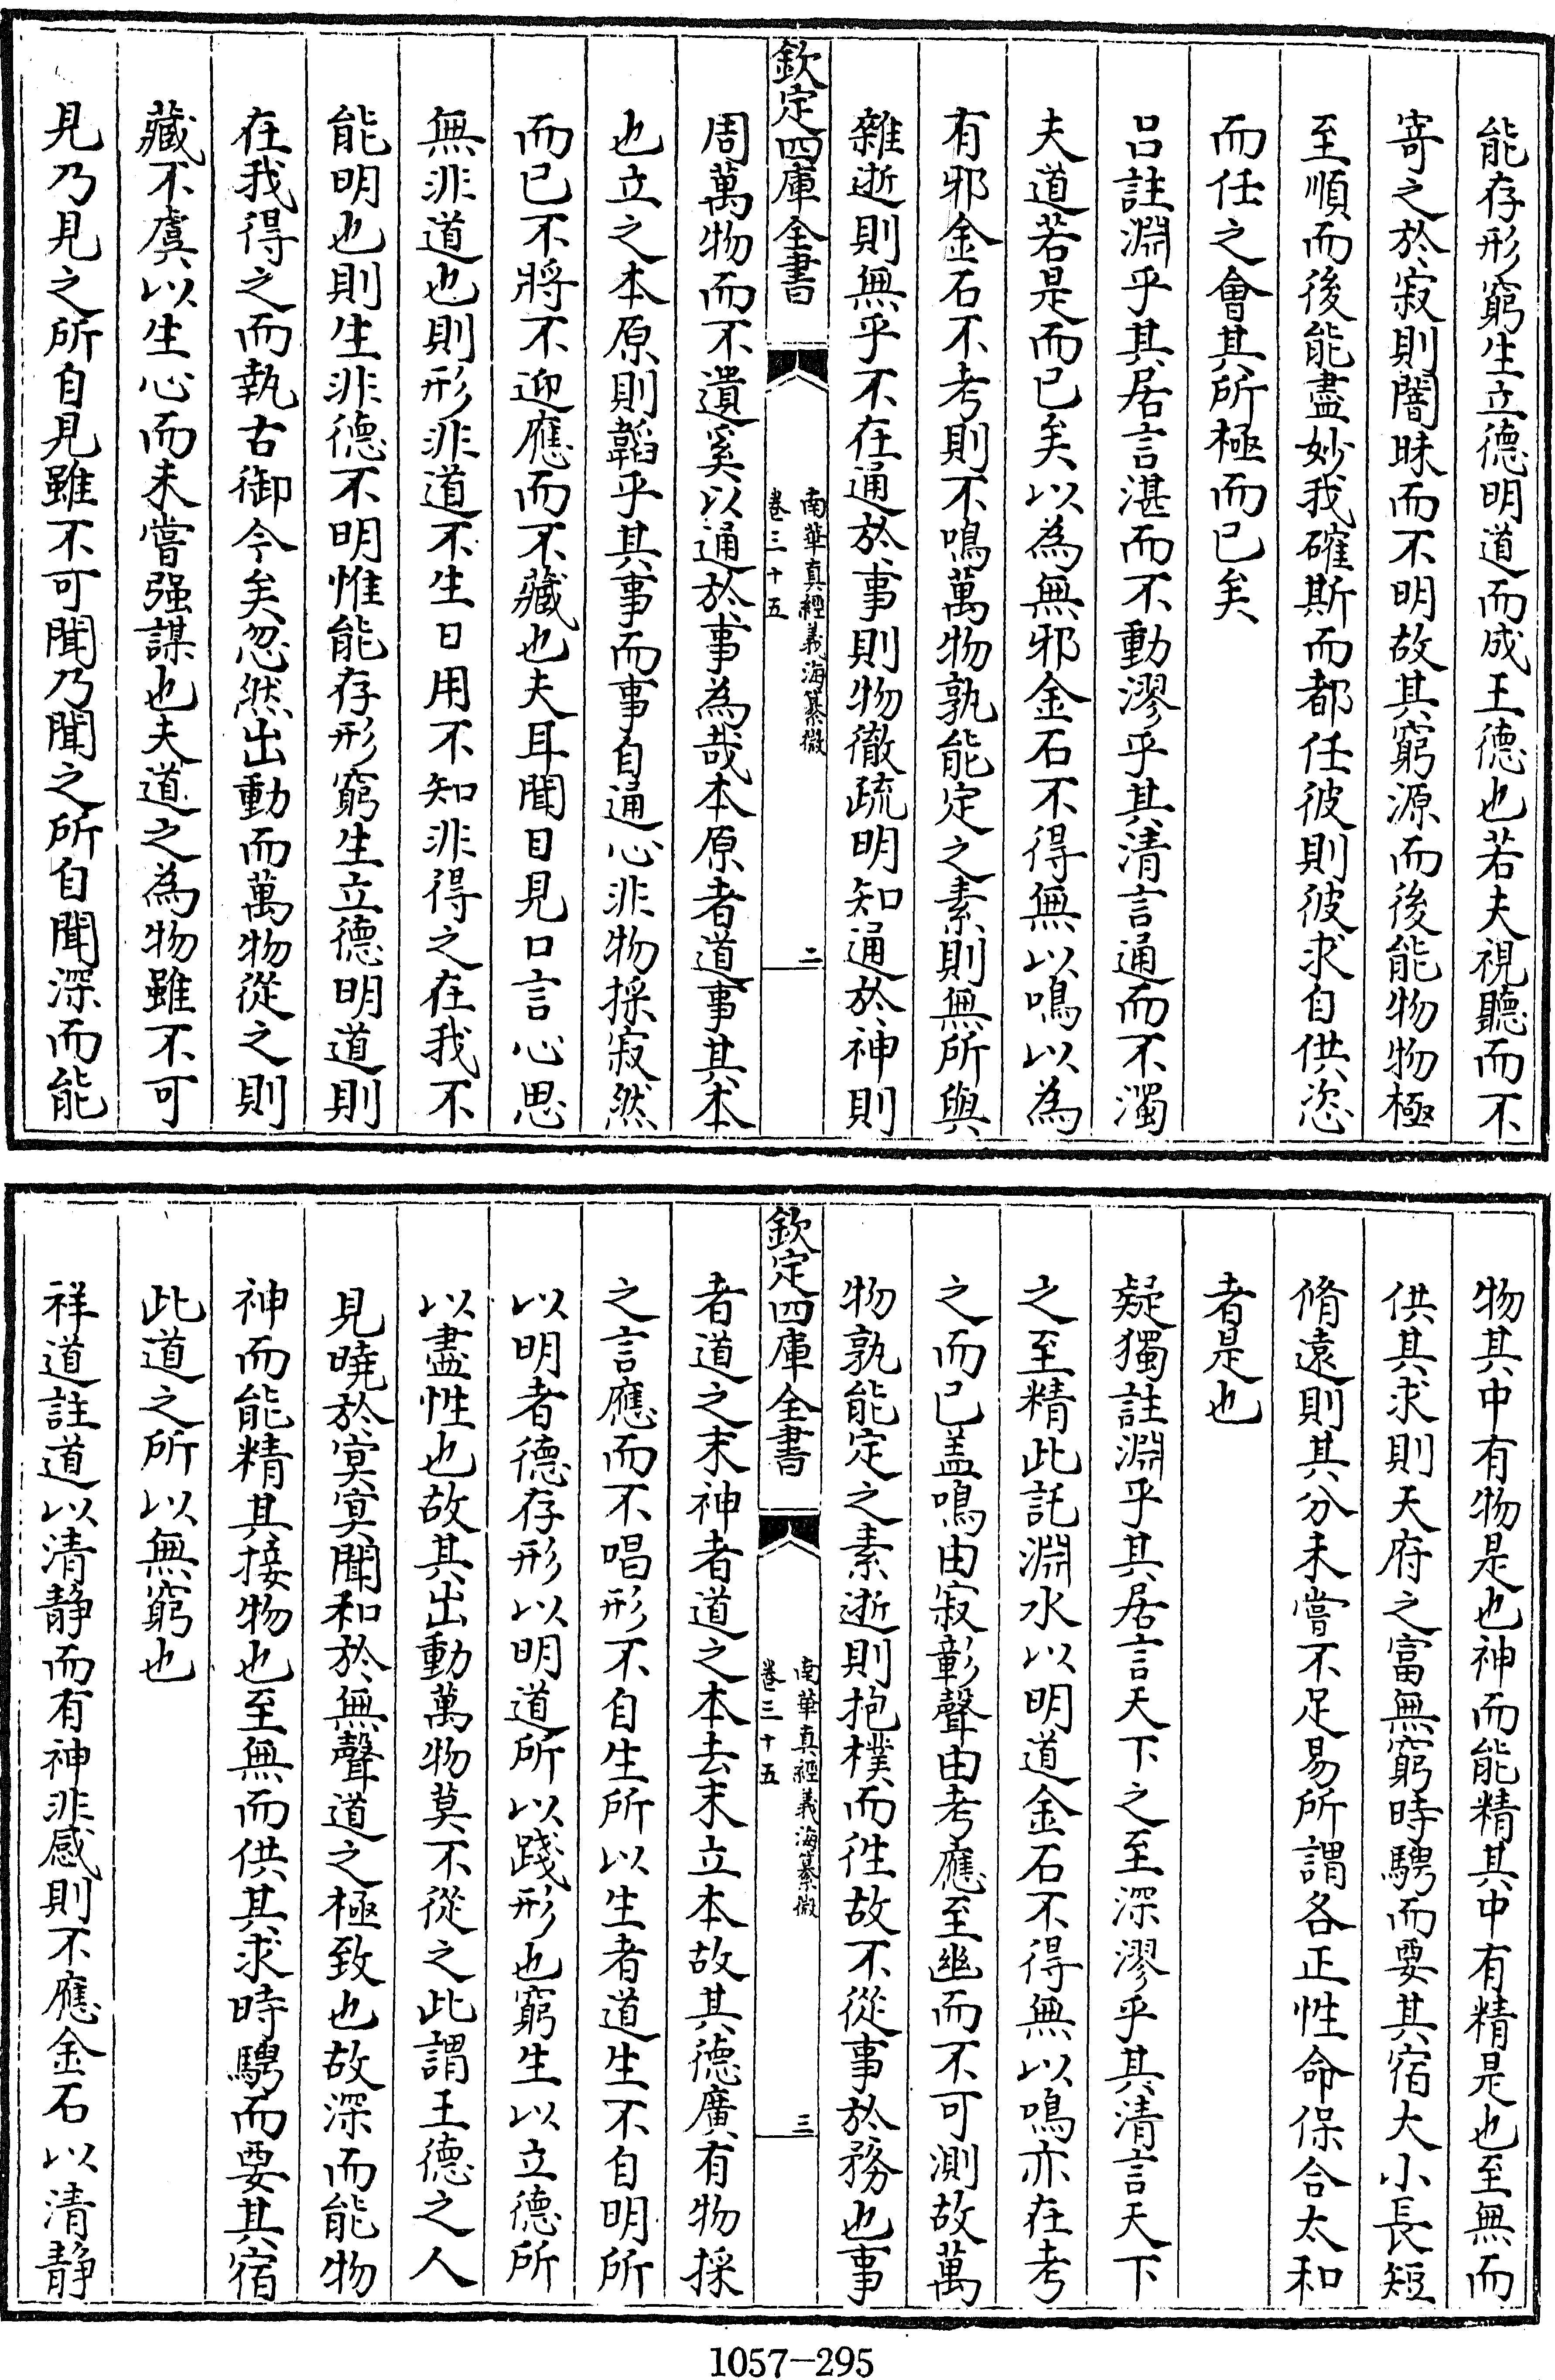 能存形窮生立德明道而成王德也若夫視聽而不
寄之於寂則闇昧而不明故其窮源而後能物物極
至順而後能盡妙我確斯而都任彼則彼求自供恣
而任之會其所極而已矣
呂註淵乎其居言湛而不動漻乎其清言通而不濁
夫道若是而已矣以為無邪金石不得無以鳴以為
有邪金石不考則不鳴萬物孰能定之素則無所與
雜逝則無乎不在通於事則物徹疏明知通於神則
欽定四庫全書
南華真經義海纂微
卷三十五
二
周萬物而不遺奚以通於事為哉本原者道事其本
也立之本原則韜乎其事而事自通心非物採寂然
而已不將不迎應而不藏也夫耳聞目見口言心思
無非道也則形非道不生日用不知非得之在我不
能明也則生非德不明惟能存形窮生立德明道則
在我得之而執古御今矣忽然出動而萬物從之則
藏不虞以生心而未嘗强謀也夫道之為物雖不可
見乃見之所自見雖不可聞乃聞之所自聞深而能
物其中有物是也神而能精其中有精是也至無而
供其求則天府之富無窮時騁而要其宿大小長短
脩遠則其分未嘗不足易所謂各正性命保合太和
者是也
疑獨註淵乎其居言天下之至深漻乎其清言天下
之至精此託淵水以明道金石不得無以鳴亦在考
之而已盖鳴由寂彰聲由考應至幽而不可測故萬
物孰能定之素逝則抱樸而徃故不從事於務也事
欽定四庫全書
南華真經義海纂微
卷三十五
三
者道之末神者道之本去末立本故其德廣有物採
之言應而不唱形不自生所以生者道生不自明所
以明者德存形以明道所以踐形也窮生以立德所
以盡性也故其出動萬物莫不從之此謂王德之人
見曉於冥冥聞和於無聲道之極致也故深而能物
神而能精其接物也至無而供其求時騁而要其宿
此道之所以無窮也
祥道註道以清静而有神非感則不應金石以清静
1057-295